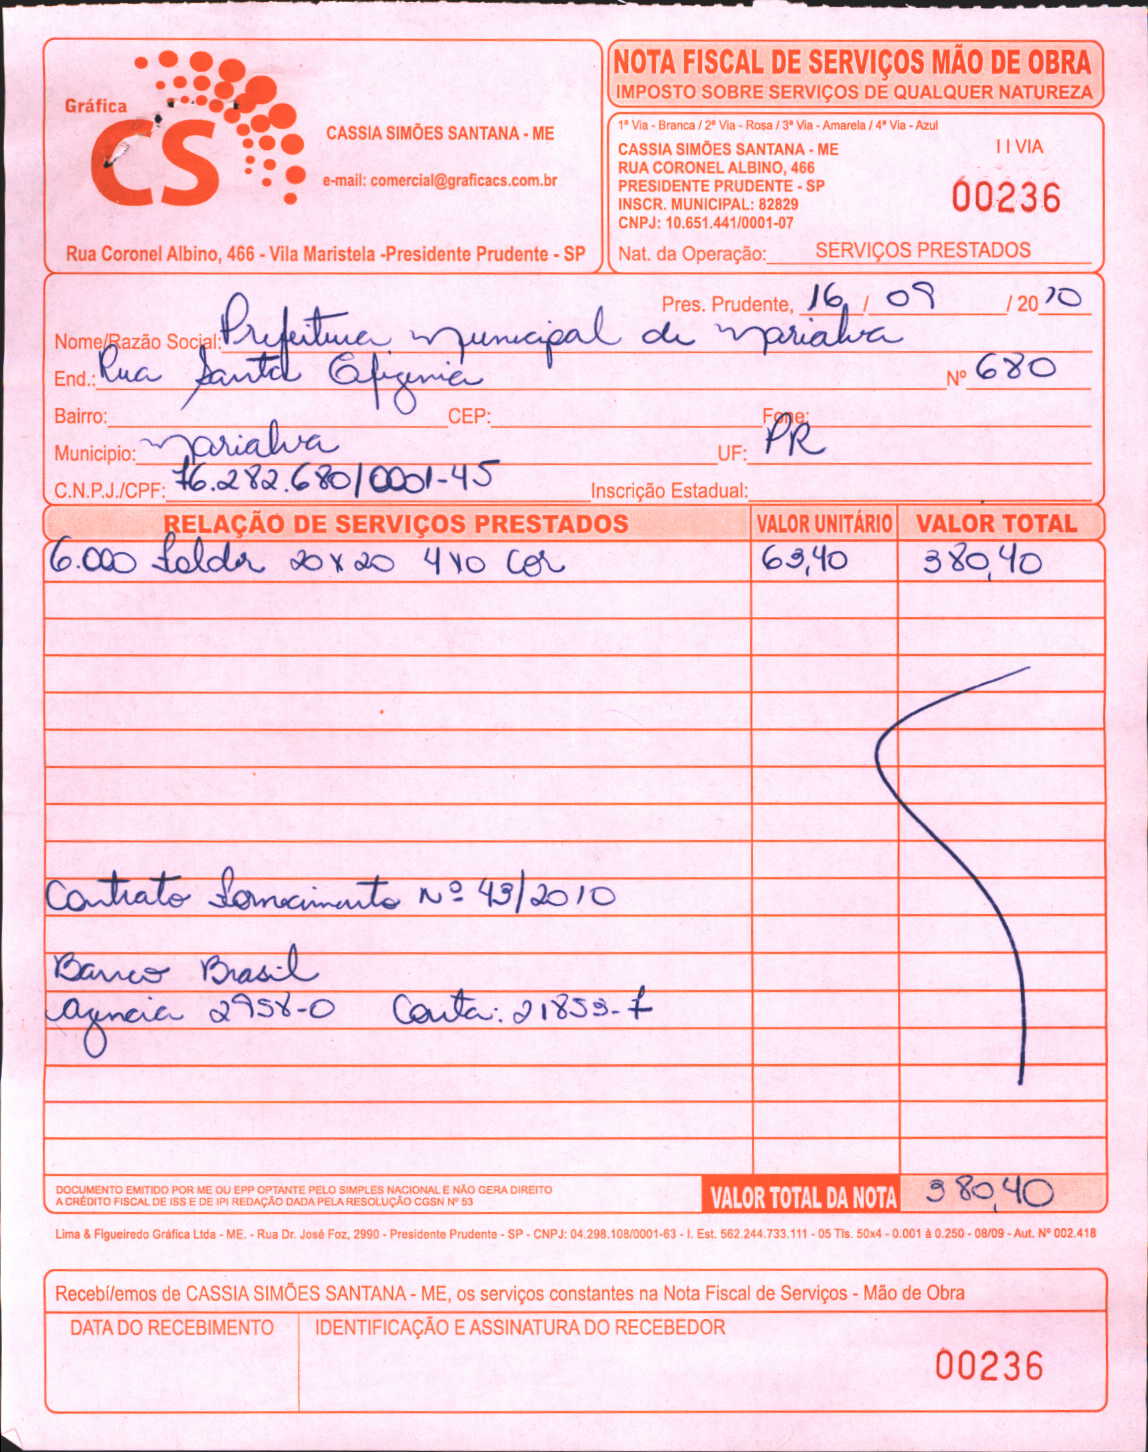 Gráfica
CS
CASSIA SIMÕES SANTANA - ME
e-mail: comercial@graficacs.com.br
Rua Coronel Albino, 466 - Vila Maristela -Presidente Prudente - SP
NOTA FISCAL DE SERVIÇOS MÃO DE OBRA
IMPOSTO SOBRE SERVIÇOS DE QUALQUER NATUREZA
1ª Via - Branca / 2ª Via - Rosa / 3ª Via - Amarela / 4ª Via - Azul
CASSIA SIMÕES SANTANA - ME
I I VIA
RUA CORONEL ALBINO, 466
PRESIDENTE PRUDENTE - SP
INSCR. MUNICIPAL: 82829
CNPJ: 10.651.441/0001-07
00236
Nat. da Operação: SERVIÇOS PRESTADOS
Pres. Prudente, 16 / 09 / 20 10
Nome/Razão Social: Prefeitura Municipal de Marialva
End.: Rua Santa Efigenia Nº 680
Bairro: CEP: Fone:
Municipio: Marialva UF: PR
C.N.P.J./CPF: 76.282.680/0001-45 Inscrição Estadual:
RELAÇÃO DE SERVIÇOS PRESTADOS VALOR UNITÁRIO VALOR TOTAL
6.000 Folder 20x20 4x0 cor 63,40 380,40
Contrato Fornecimento Nº 43/2010
Banco Brasil
Agencia 2958-0 Conta: 21853-7
DOCUMENTO EMITIDO POR ME OU EPP OPTANTE PELO SIMPLES NACIONAL E NÃO GERA DIREITO
A CRÉDITO FISCAL DE ISS E DE IPI REDAÇÃO DADA PELA RESOLUÇÃO CGSN Nº 53
VALOR TOTAL DA NOTA 380,40
Lima & Figueiredo Gráfica Ltda - ME. - Rua Dr. José Foz, 2990 - Presidente Prudente - SP - CNPJ: 04.298.108/0001-63 - I. Est. 562.244.733.111 - 05 Tls. 50x4 - 0.001 à 0.250 - 08/09 - Aut. Nº 002.418
Recebi/emos de CASSIA SIMÕES SANTANA - ME, os serviços constantes na Nota Fiscal de Serviços - Mão de Obra
DATA DO RECEBIMENTO IDENTIFICAÇÃO E ASSINATURA DO RECEBEDOR
00236